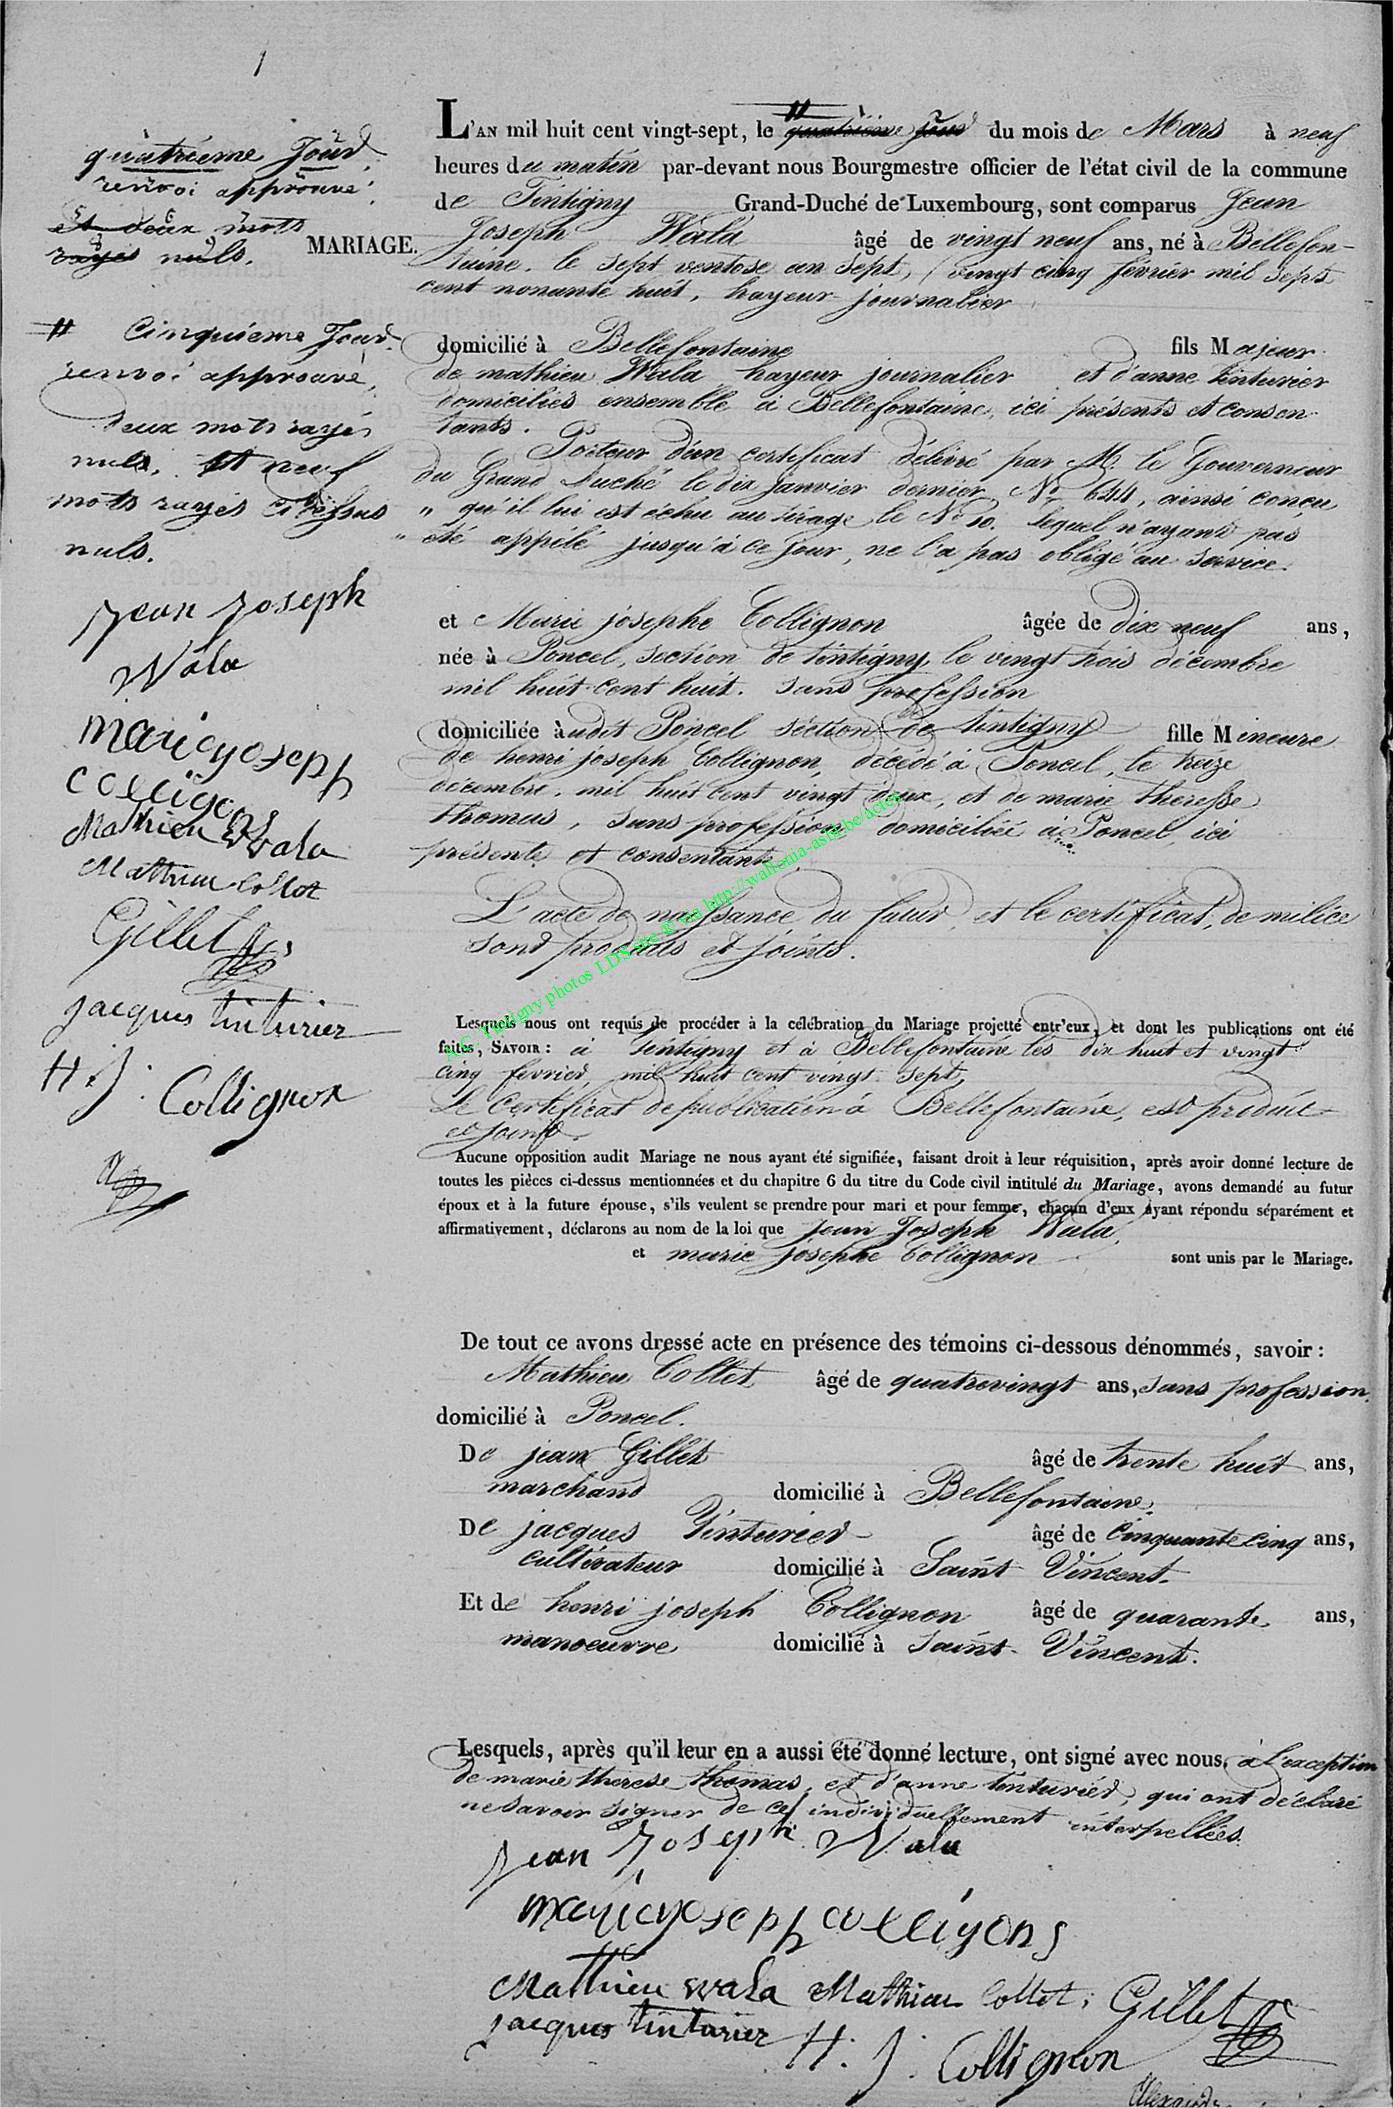 1
quatrième Jour
renvoi approuvé.
et deux mots
rayés nuls.
MARIAGE.
# Cinquieme Jour.
renvoi approuvé,
deux mots rayés
nuls. Et neuf
mots rayés ci dessus
nuls.
jean joseph
Wala
marie yoseph
colligons
Mathieu Wala
Mathieu Collet
Gillet
jacques tinturier
H. J. Collignon
L'AN mil huit cent vingt-sept, le # quatrième jour du mois de Mars à neuf
heures du matin par-devant nous Bourgmestre officier de l'état civil de la commune
de Tintigny Grand-Duché de Luxembourg, sont comparus Jean
Joseph Wala âgé de vingt neuf ans, né à Bellefon-
taine. le sept ventose an sept, (vingt cinq février mil sept
cent nonante huit, hayeur journalier
domicilié à Bellefontaine fils Majeur
de mathieu Wala hayeur journalier et d'anne tinturier
domiciliés ensemble à Bellefontaine, ici présents et consen-
tants.
Porteur d'un certificat délivré par M. le Gouverneur
du Grand Duché le dix janvier dernier No 644, ainsi concu
" qu'il lui est échu au tirage le No 10. lequel n'ayant pas
" été appélé jusqu'à ce jour, ne l'a pas obligé au service.
et Marie josephe Collignon âgée de dix neuf ans,
née à Poncel, section de tintigny, le vingt trois décembre
mil huit cent huit. sans profession
domiciliée àudit Poncel section de tintigny fille Mineure
de henri joseph Collignon, décédé à Poncel, le treize
décembre. mil huit cent vingt deux, et de marie theresse
thomas, sans profession domiciliée à Poncel, ici
présente et consentante
L'acte de naissance du futur, et le certificat, de milice
sont produits et joints.
Lesquels nous ont requis de procéder à la célébration du Mariage projetté entr'eux, et dont les publications ont été
faites, SAVOIR: à Tintigny et à Bellefontaine les dix huit et vingt
cinq fevrier, mil huit cent vingt sept,
Le Certificat de publication à Bellefontaine, est produit
et joint.
Aucune opposition audit Mariage ne nous ayant été signifiée, faisant droit à leur réquisition, après avoir donné lecture de
toutes les pièces ci-dessus mentionnées et du chapitre 6 du titre du Code civil intitulé du Mariage, avons demandé au futur
époux et à la future épouse, s'ils veulent se prendre pour mari et pour femme, chacun d'eux ayant répondu séparément et
affirmativement, déclarons au nom de la loi que Jean Joseph Wala,
et marie josephe Collignon sont unis par le Mariage.
De tout ce avons dressé acte en présence des témoins ci-dessous dénommés, savoir:
Mathieu Collet âgé de quatrevingt ans, sans profession
domicilié à Poncel.
De jean Gillet âgé de trente huit ans,
marchand domicilié à Bellefontaine
De jacques Tinturier âgé de Cinquante cinq ans,
cultivateur domicilié à Saint Vincent.
Et de henri joseph Collignon âgé de quarante ans,
manoeuvre domicilié à saint Vincent.
Lesquels, après qu'il leur en a aussi été donné lecture, ont signé avec nous, à l'exception
de marie therese thomas, et d'anne tinturier, qui ont déclaré
ne savoir signer de ce individuellement interpellées.
jean joseph Wala
marie yoseph colligons
Mathieu Wala Mathieu Collet. Gillet
jacques tinturier H. J. Collignon
A.C. Tintigny photos LDS site © via http://wallonia-asbl.be/actes